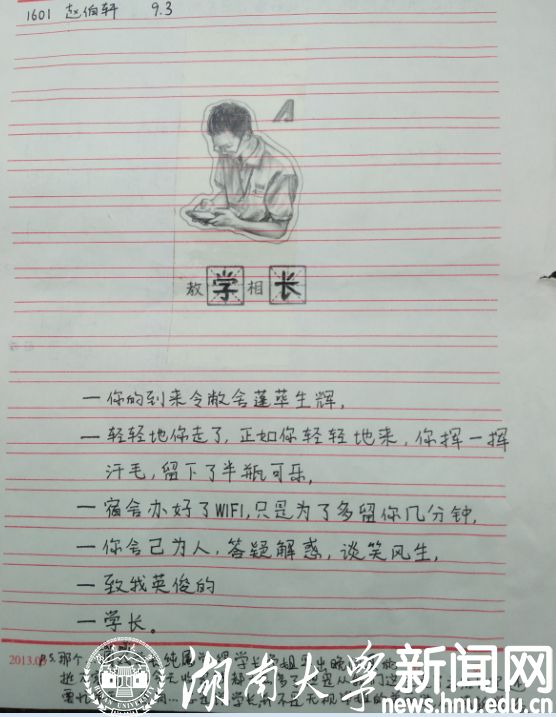 1601 赵伯轩 9.3
A
教学相长
一你的到来令敝舍蓬荜生辉,
一轻轻地你走了,正如你轻轻地来,你挥一挥
汗毛,留下了半瓶可乐,
一宿舍办好了WIFI,只是为了多留你几分钟,
一你舍己为人,答疑解惑,谈笑风生,
一致我英俊的
一学长。
2013.0
那个
湖南大学新闻网
news.hnu.edu.cn